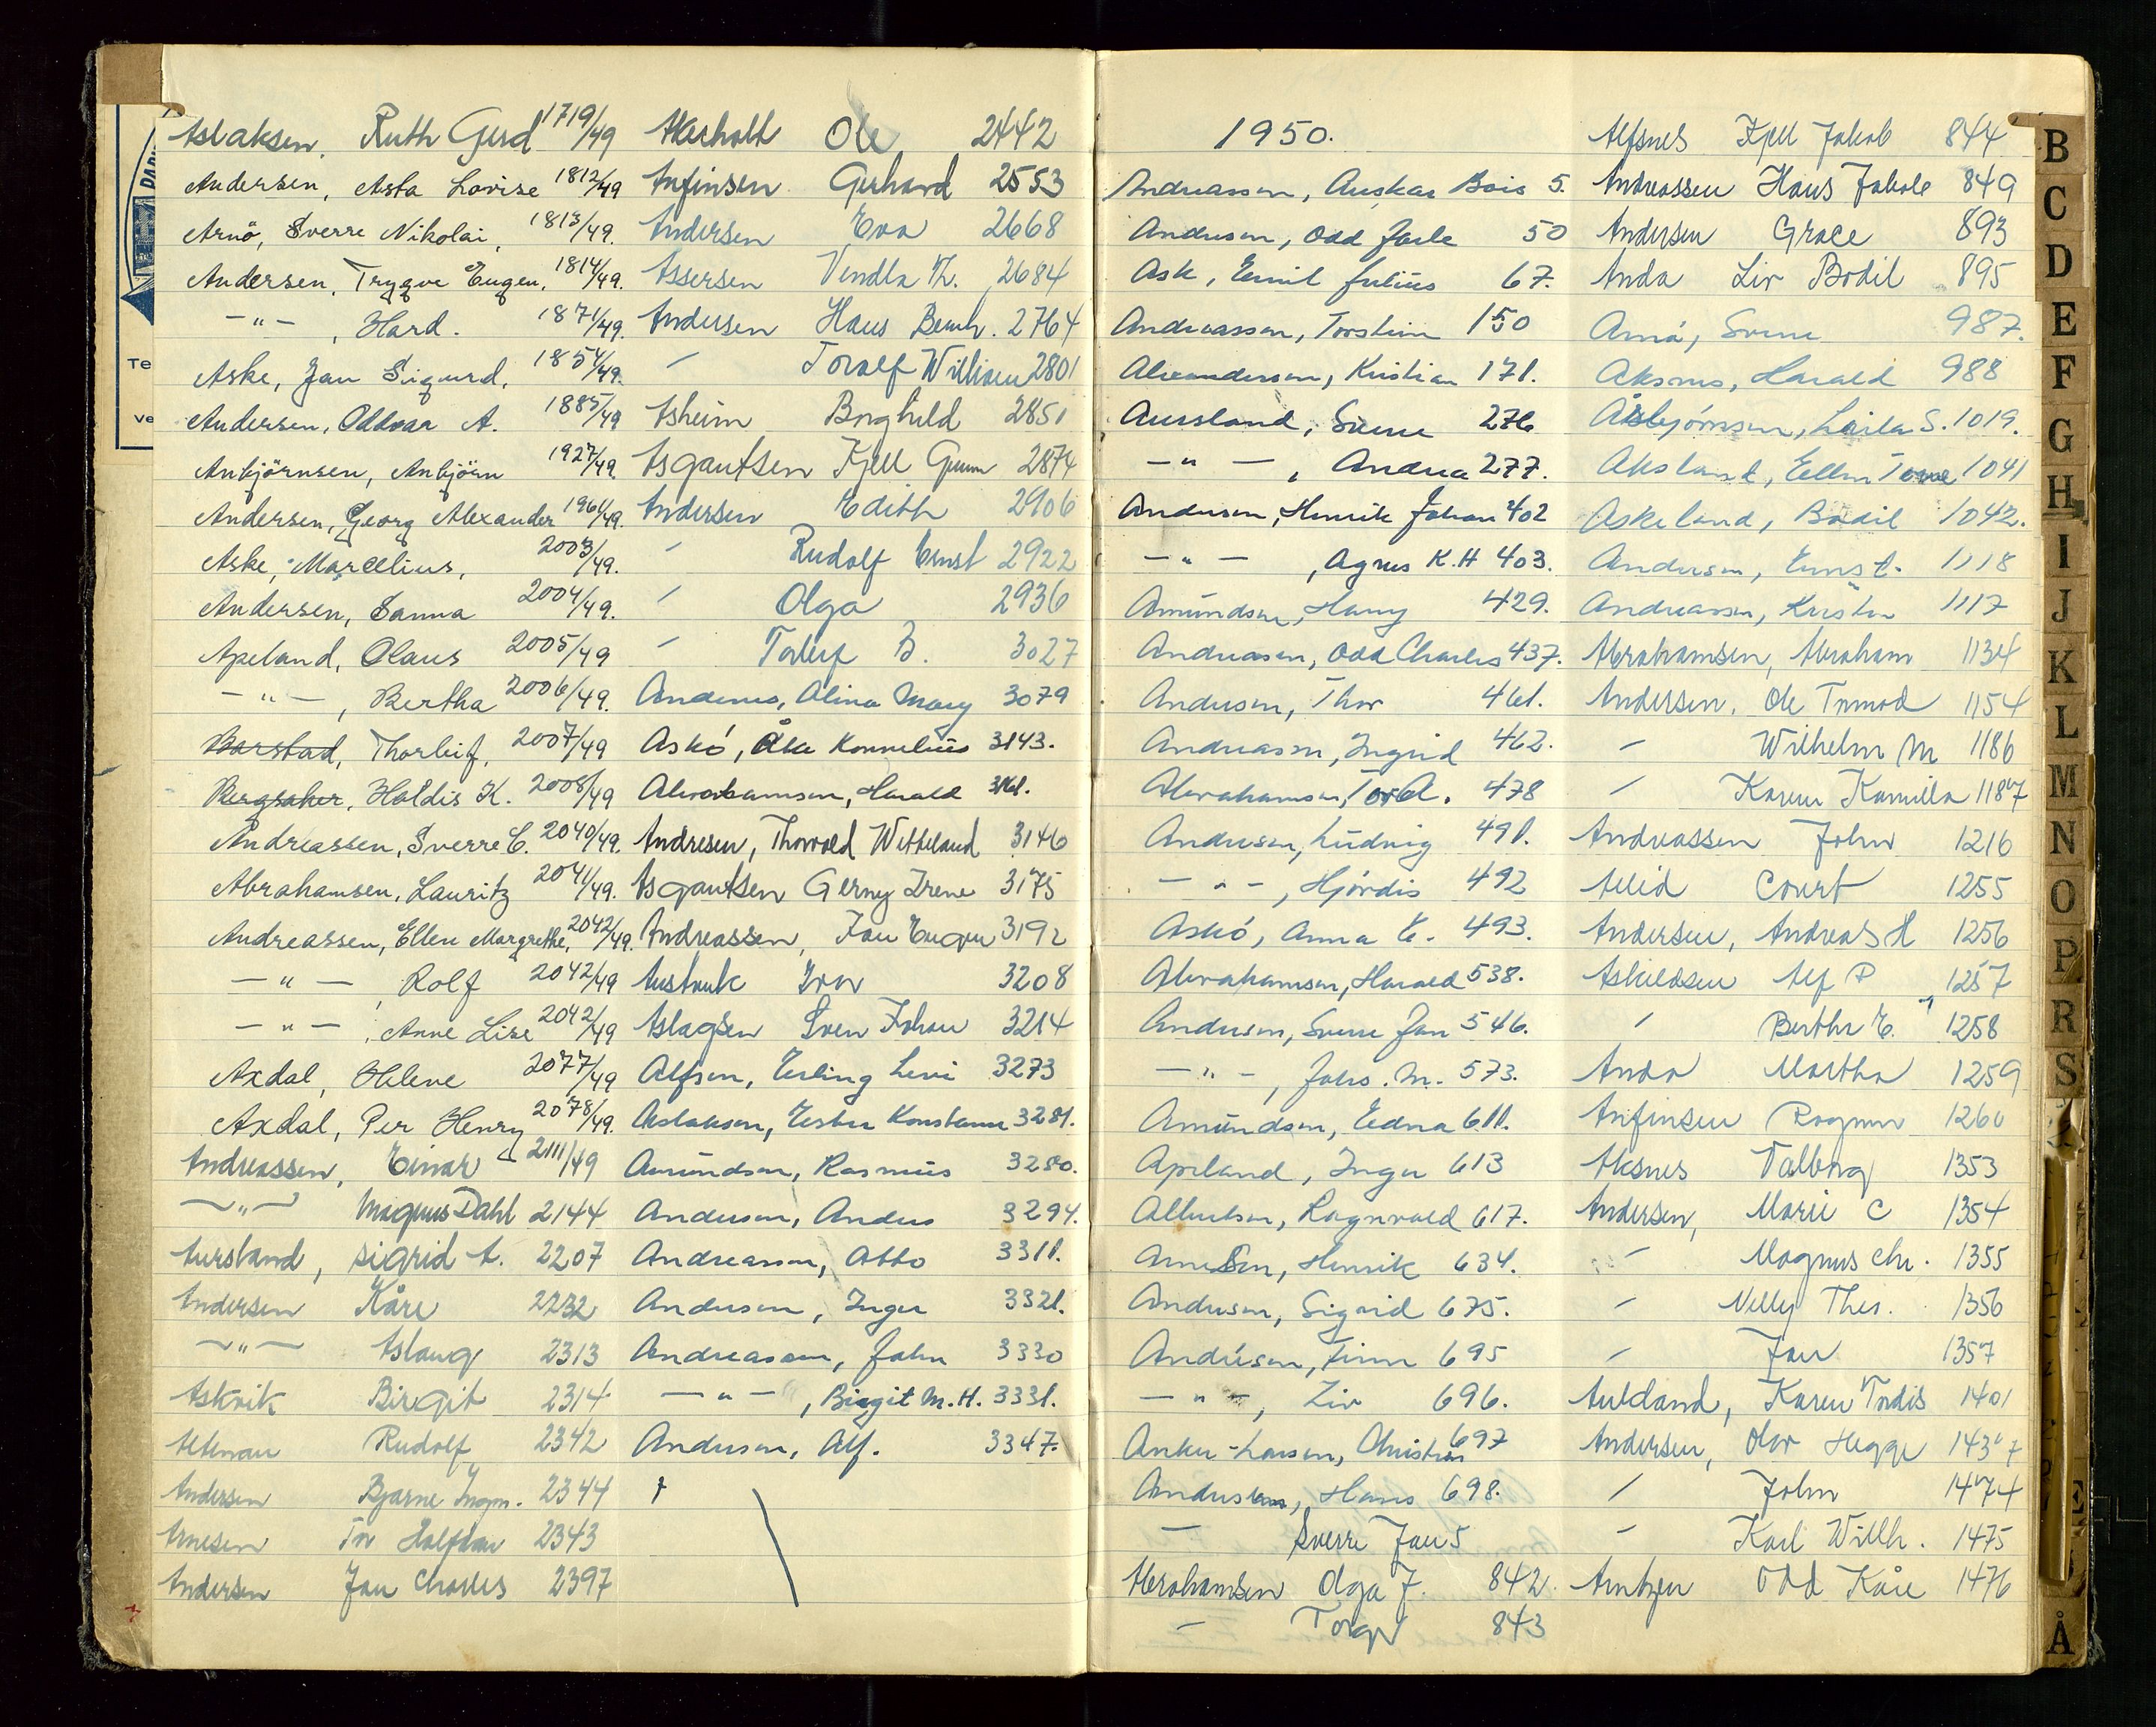 Aslaksen, Ruth Gerd 1719/49
Andersen, Asta Lovise 1812/49
Arnö, Sverre Nikolai, 1813/49.
Andersen, Trygve Eugen, 1814/49.
-"-, Hard. 1871/49.
Aske, Jan Sigurd, 1854/49.
Andersen, Oddvar A. 1885/49
Anbjörnsen, Anbjörn 1927/49.
Andersen, Georg Alexander 1961/49.
Aske, Marcelius, 2003/49.
Andersen, Sanna 2004/49.
Apeland, Olaus 2005/49
-"-, Bertha 2006/49.
Barstad, Thorleif, 2007/49
Bergsaker, Haldis K. 2008/49
Andreassen, Sverre C. 2040/49.
Abrahamsen, Lauritz 2041/49.
Andreassen, Ellen Margrethe, 2042/49.
-"-, Rolf 2042/49
-"-, Anne Lise 2042/49
Axdal, Helene 2077/49
Axdal, Per Henry 2078/49.
Andreassen, Einar - 2111/49
-"- Magnus Dahl 2144
Aursland, Sigrid A. 2207
Andersen Kåre 2232
-"- Aslaug 2313
Askvik Birgit 2314
Altman Rudolf 2342
Andersen Bjarne Ingm. 2344
Arnesen Tor Halfdan 2343
Andersen Jan Charles 2397
Akerholt Ole 2442
Anfinsen Gerhard 2553
Andersen Eva 2668
Assersen Vendla Th. 2684
Andersen Hans Bernh. 2764
" Torolf William 2801
Asheim Borghild 2851
Asgautsen Kjell Gunn 2874
Andersen Edith 2906
" Rudolf Ernst 2922
" Olga 2936
" Torleif B. 3027
Anderns, Alina Mary 3079
Askö, Åke Kornelius 3143.
Abrahamsen, Harald 3161.
Andresen, Thorvald Wetteland 3146
Asgautsen Gerny Irene 3175
Andreassen, Jan Eugen 3192
Austvik Ivar 3208
Aslagsen Sven Johan 3214
Alfsen, Erling Levi 3273
Aslaksen, Ester Konstanse 3281.
Amundsen, Rasmus 3280.
Andersen, Anders 3294.
Andreassen, Otto 3311.
Andersen, Inger 3321.
Andreassen, John 3330
-"-, Birgit M.H. 3331.
Andersen, Alf. 3347.
1950.
Andreassen, Anskar Bois 5.
Andersen, Odd Jarle 50
Ask, Emil Julius 67.
Andreassen, Torstein 150
Alexandersen, Kristian 171.
Aursland, Sverre 276
-"-, Andrea 277.
Andersen, Henrik Johan 402
-"-, Agnes K.H 403.
Amundsen, Harry 429.
Andreassen, Odd Charles 437.
Andersen, Thor 461.
Andreassen, Ingrid 462.
Abrahamsen, Tor A. 478
Andersen, Ludvig 491.
-"-, Hjördis 492
Askö, Anna E. 493.
Abrahamsen, Harald 538.
Andersen, Sverre Jan 546.
-"-, Johs. M. 573.
Amundsen, Edna 611.
Apeland, Inger 613
Albertsen, Ragnvald 617.
Arnesen, Henrik 634.
Andersen, Sigrid 675.
Andersen, Finn 695
-"-, Liv 696.
Anker-Larsen, Christian 697
Andersen, Hans 698.
- Sverre Jan 5
Abrahamsen Olga J. 842.
- Torger 843
Alfsnes Kjell Jakob 844
Andreassen Hans Jakob 849
Andersen Grace 893
Anda Liv Bodil 895
Arnö, Sverre 987.
Aksnes, Harald 988
Åsbjörnsen, Laila S. 1019.
Aksland, Ellen Tove 1041
Askeland, Bodil 1042.
Andersen, Ernst. 1118
Andreassen, Kristen 1117
Abrahamsen, Abraham 1134
Andersen, Ole Tormod 1154
" Wilhelm M 1186
" Karen Kamilla 1187
Andreassen John 1216
Allid Court 1255
Andersen, Andreas H 1256
Askildsen Alf P 1257
" Berthe E. 1258
Anda Martha 1259
Anfinsen Ragnar 1260
Aksnes Valborg 1353
Andersen, Marie C 1354
" Magnus Chr. 1355
" Nelly Thes. 1356
" Jan 1357
Aukland, Karen Tordis 1401
Andersen, Olav Hegge 1437
" John 1474
" Karl Wilh. 1475
Arntzen Odd Kåre 1476
B
C
D
E
F
G
H
I
J
K
L
M
N
O
P
R
S
Å